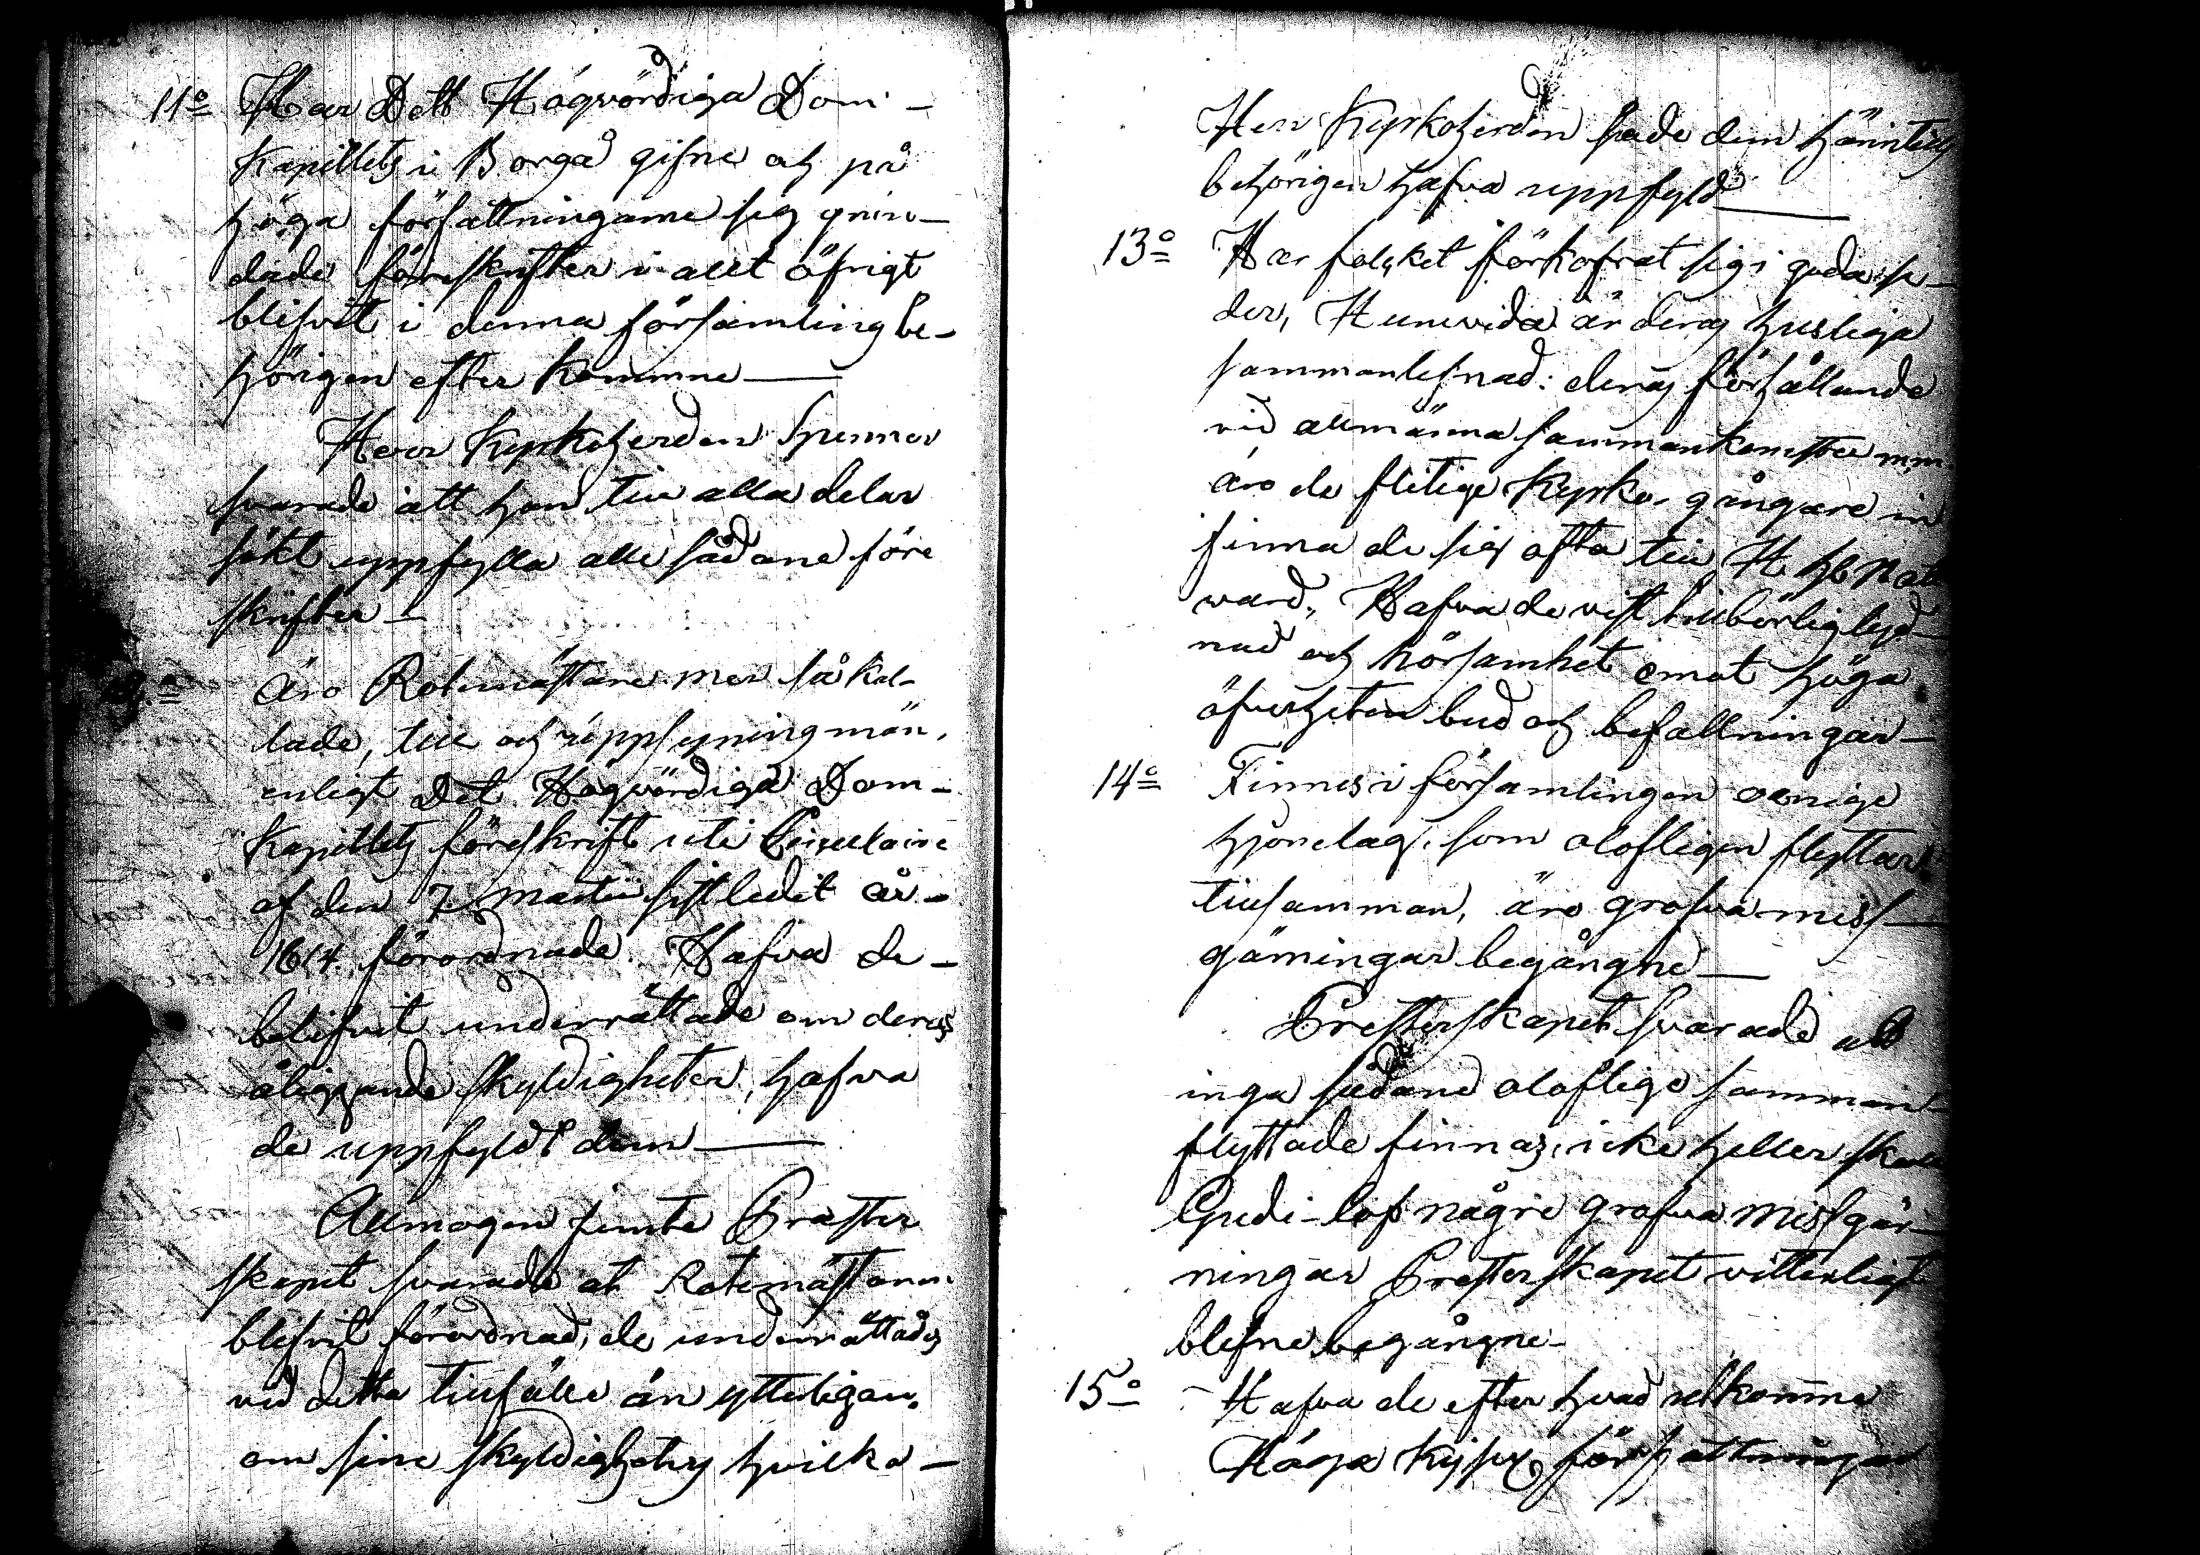 11º Har Dett Högvördiga Dom-
Kapitlets i Borgå gifne och på
höga författningarne sig grun-
dade föreskrifter i allt öfrigt
blifvit i denna församling be-
hörigen efter komme—
Herr Kyrkoherden
svarade att han till alla delar
sökt uppfylla alle sådane före
skrifter—
Äro Rotemästare mer så kal-
lade, till och uppsyningmän,
enligt Det Högvördiga Dom-
Kapitlets föreskrift uti Circulaire
af den 7 Martii sistledit år-
förordnade. Hafva de-
blifvit underrättade om deras
åliggande skyldigheter, hafva
de uppfyldt dem—
Allmogen jemte Præster
skapet svarade at Rotemästarne
blifvit förordnad, de underrättades
vid detta tillfälle än ytterligare
om sine skyldigheter hvilka-
Herr Kyrkoherden sade dem
behörigen hafva uppfyld—
13º Har folcket förkofrat sig i goda se-
der, Huruvida är deras husliga
sammanlefnad: deras förhållande
vid allmänna sammankomster m.m.
äro de flitige Kyrko-gångare in
finna de sig ofta till H. H. Natt
ward, Hafva de vist tillbörlig lyd-
nad och hörsamhet emot höga
öfverheten bud och befallningar—
14º Finnes i församlingen oenige
hjonelag, som olofligen flyttar
tillsamman, äro grofva miss-
gärningar begångne—
Presterskapet svarade att
inga sådane oloflige samman-
flyttade finnas, icke heller skall
Gudi-lof några grofva missgär-
ningar Presterskapet vitterligt
blifne begångne-
15º Hafva de efter hvad
Höga författningar